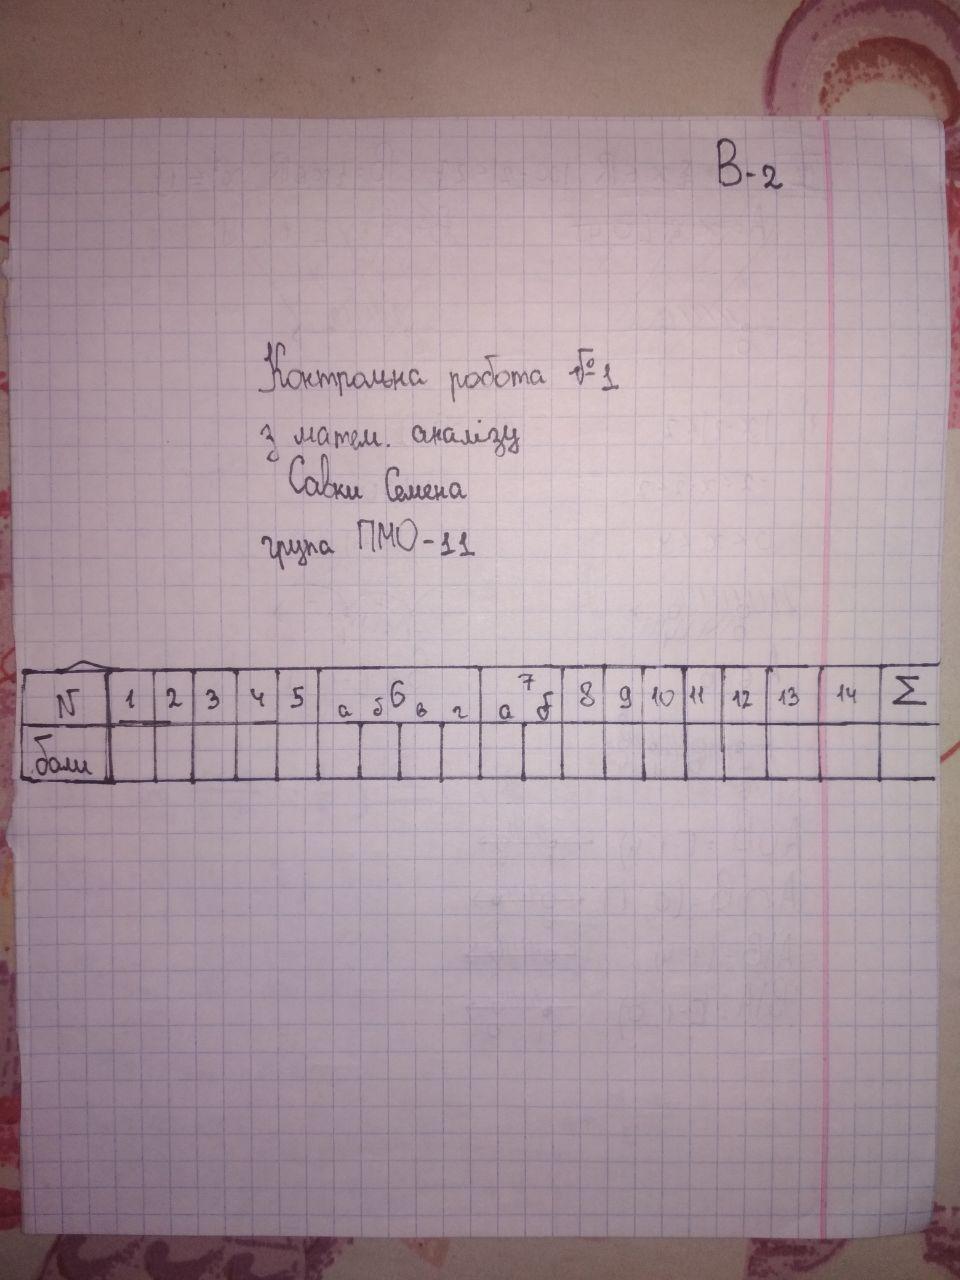 В-2
Контрольна робота №1
з матем. аналізу
Савки Семена
група ПМО-11
N 1 2 3 4 5 6 7 8 9 10 11 12 13 14 Σ
а б в г а б
бали